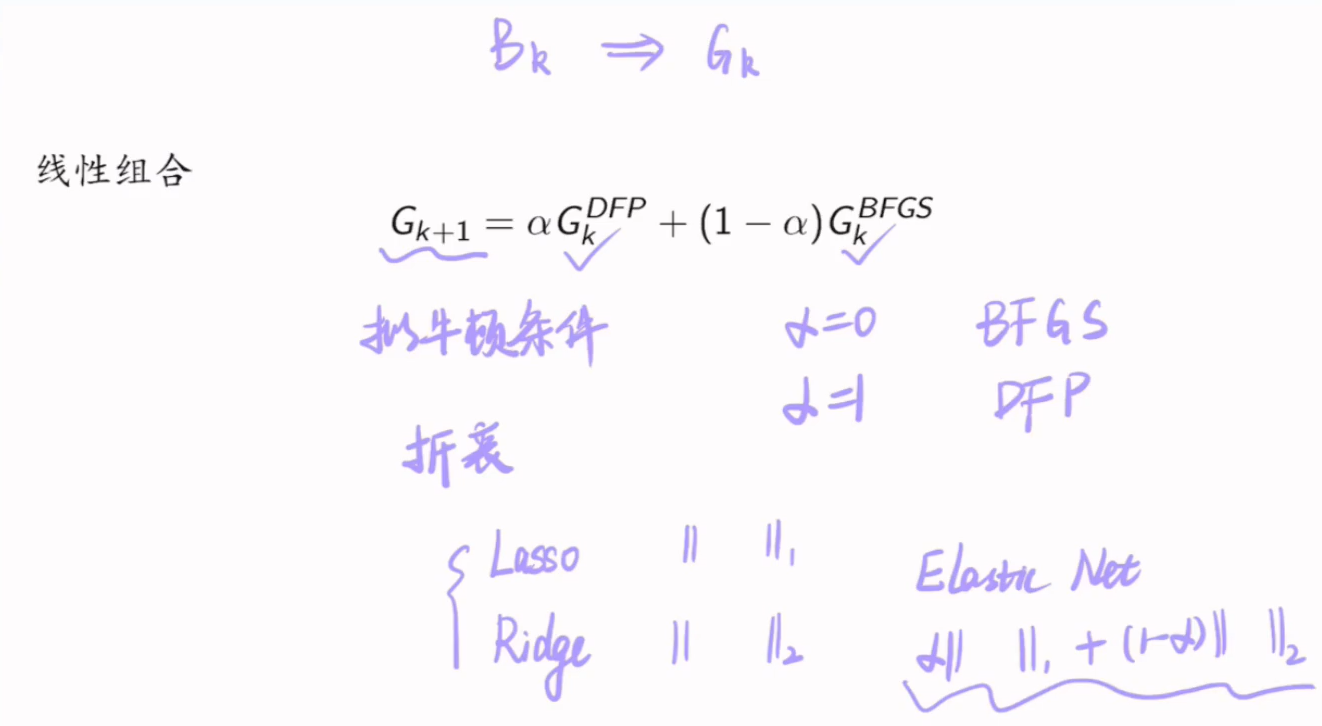 B_k ⇒ G_k
线性组合
G_{k+1} = αG_k^{DFP} + (1 − α)G_k^{BFGS}
拟牛顿条件 α=0 BFGS
α=1 DFP
折衷
{ Lasso ‖ ‖_1 Elastic Net
Ridge ‖ ‖_2 α‖ ‖_1 + (1-α)‖ ‖_2